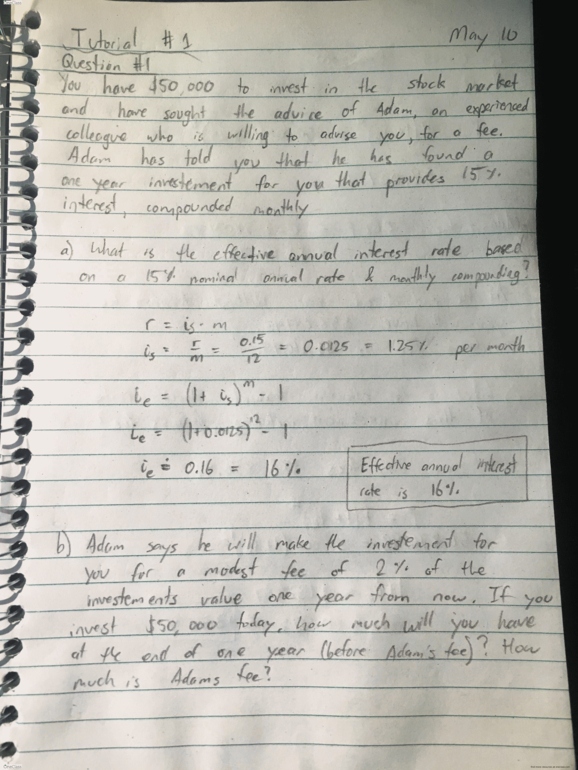 Tutorial #1 May 10
Question #1
You have $50,000 to invest in the stock market
and have sought the advice of Adam, an experienced
colleague who is willing to advise you, for a fee.
Adam has told you that he has found a
one year investement for you that provides 15%
interest, compounded monthly
a) What is the effective annual interest rate based
on a 15% nominal annual rate & monthly compounding?
r = is · m
is = r/m = 0.15/12 = 0.0125 = 1.25% per month
ie = (1 + is)^m - 1
ie = (1+0.0125)^12 - 1
ie ≐ 0.16 = 16%
Effective annual interest
rate is 16%
b) Adam says he will make the investement for
you for a modest fee of 2% of the
investements value one year from now. If you
invest $50,000 today, how much will you have
at the end of one year (before Adam's fee)? How
much is Adams fee?